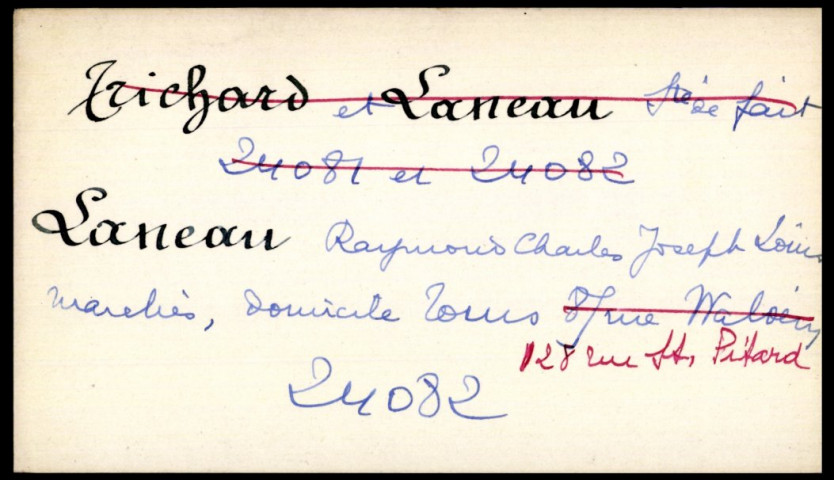 Trichard et Laneau Sté de fait
24081 et 24082
Laneau Raymond Charles Joseph Louis
domicile Tours 8 rue
128 rue St, Pitard
24082